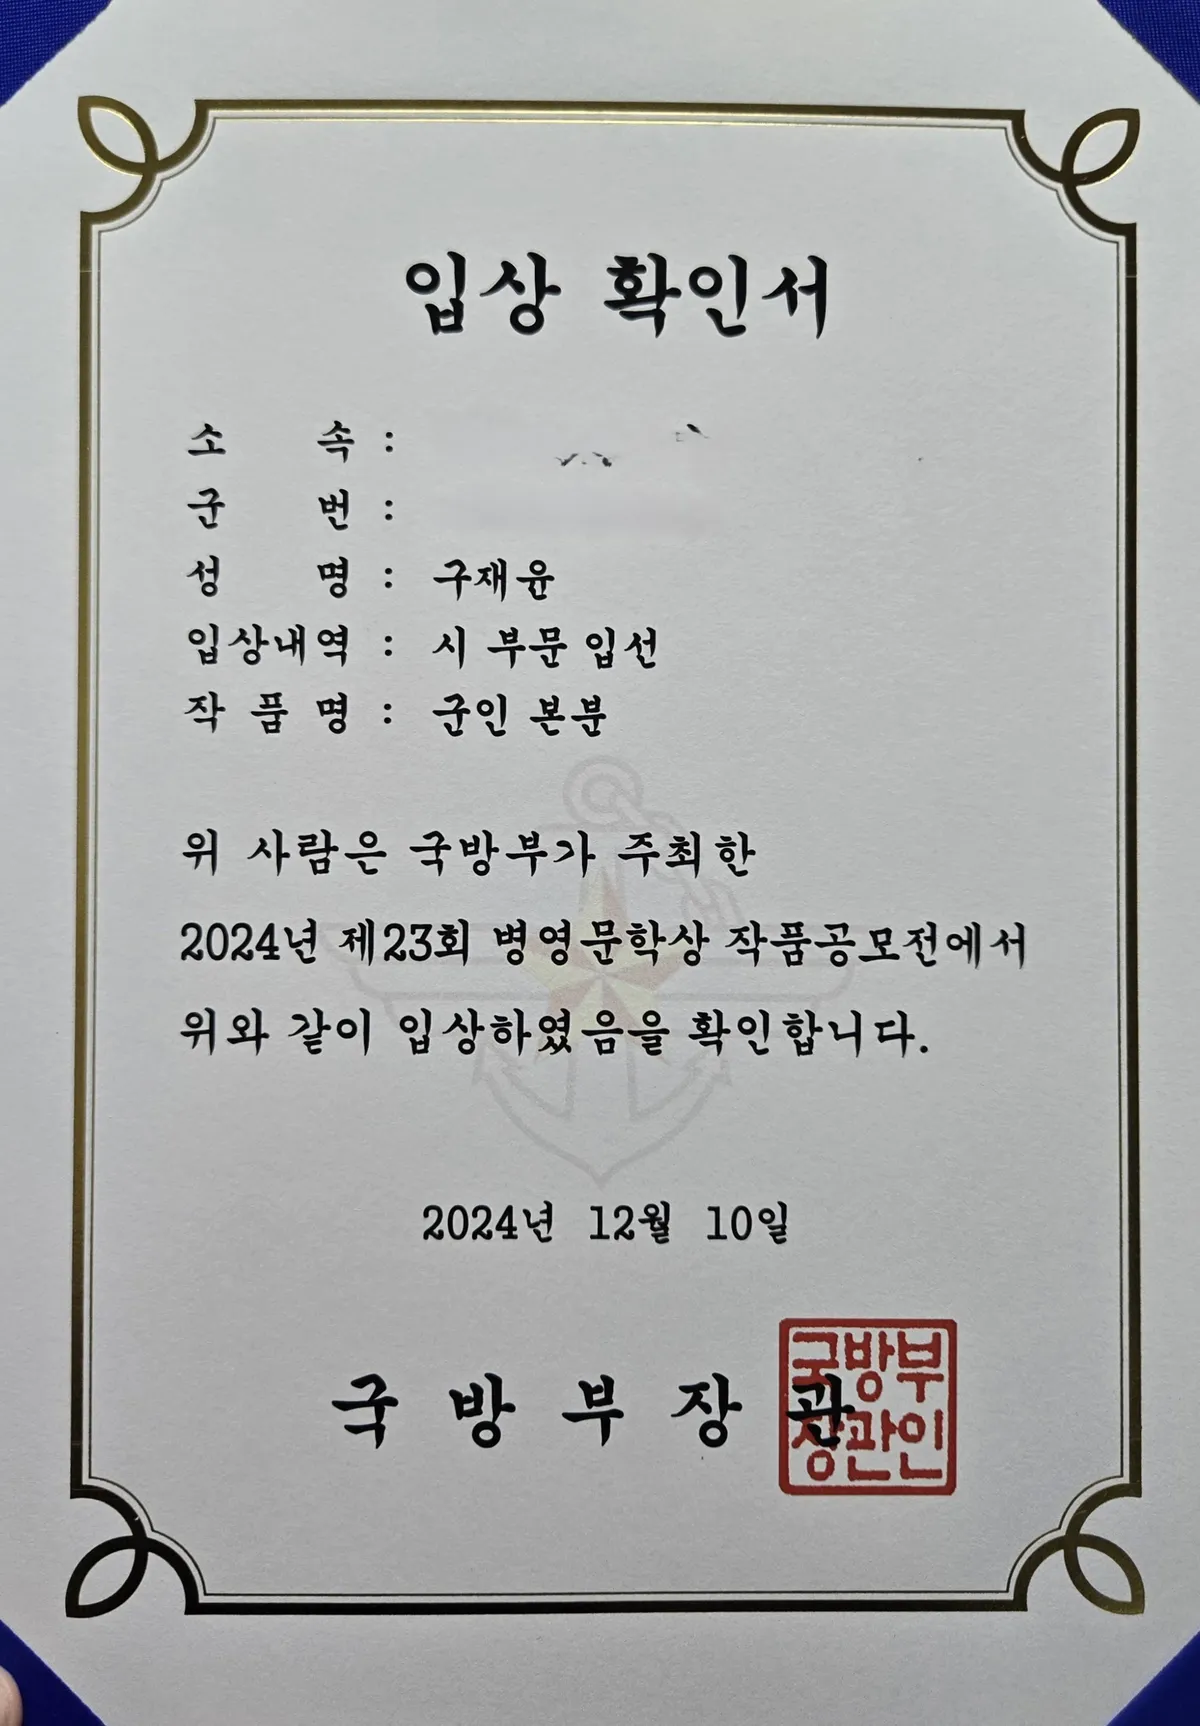 입상 확인서
소 속 :
군 번 :
성 명 : 구재윤
입상내역 : 시 부문 입선
작 품 명 : 군인 본분
위 사람은 국방부가 주최한
2024년 제23회 병영문학상 작품공모전에서
위와 같이 입상하였음을 확인합니다.
2024년 12월 10일
국 방 부 장 관
국방부
장관인